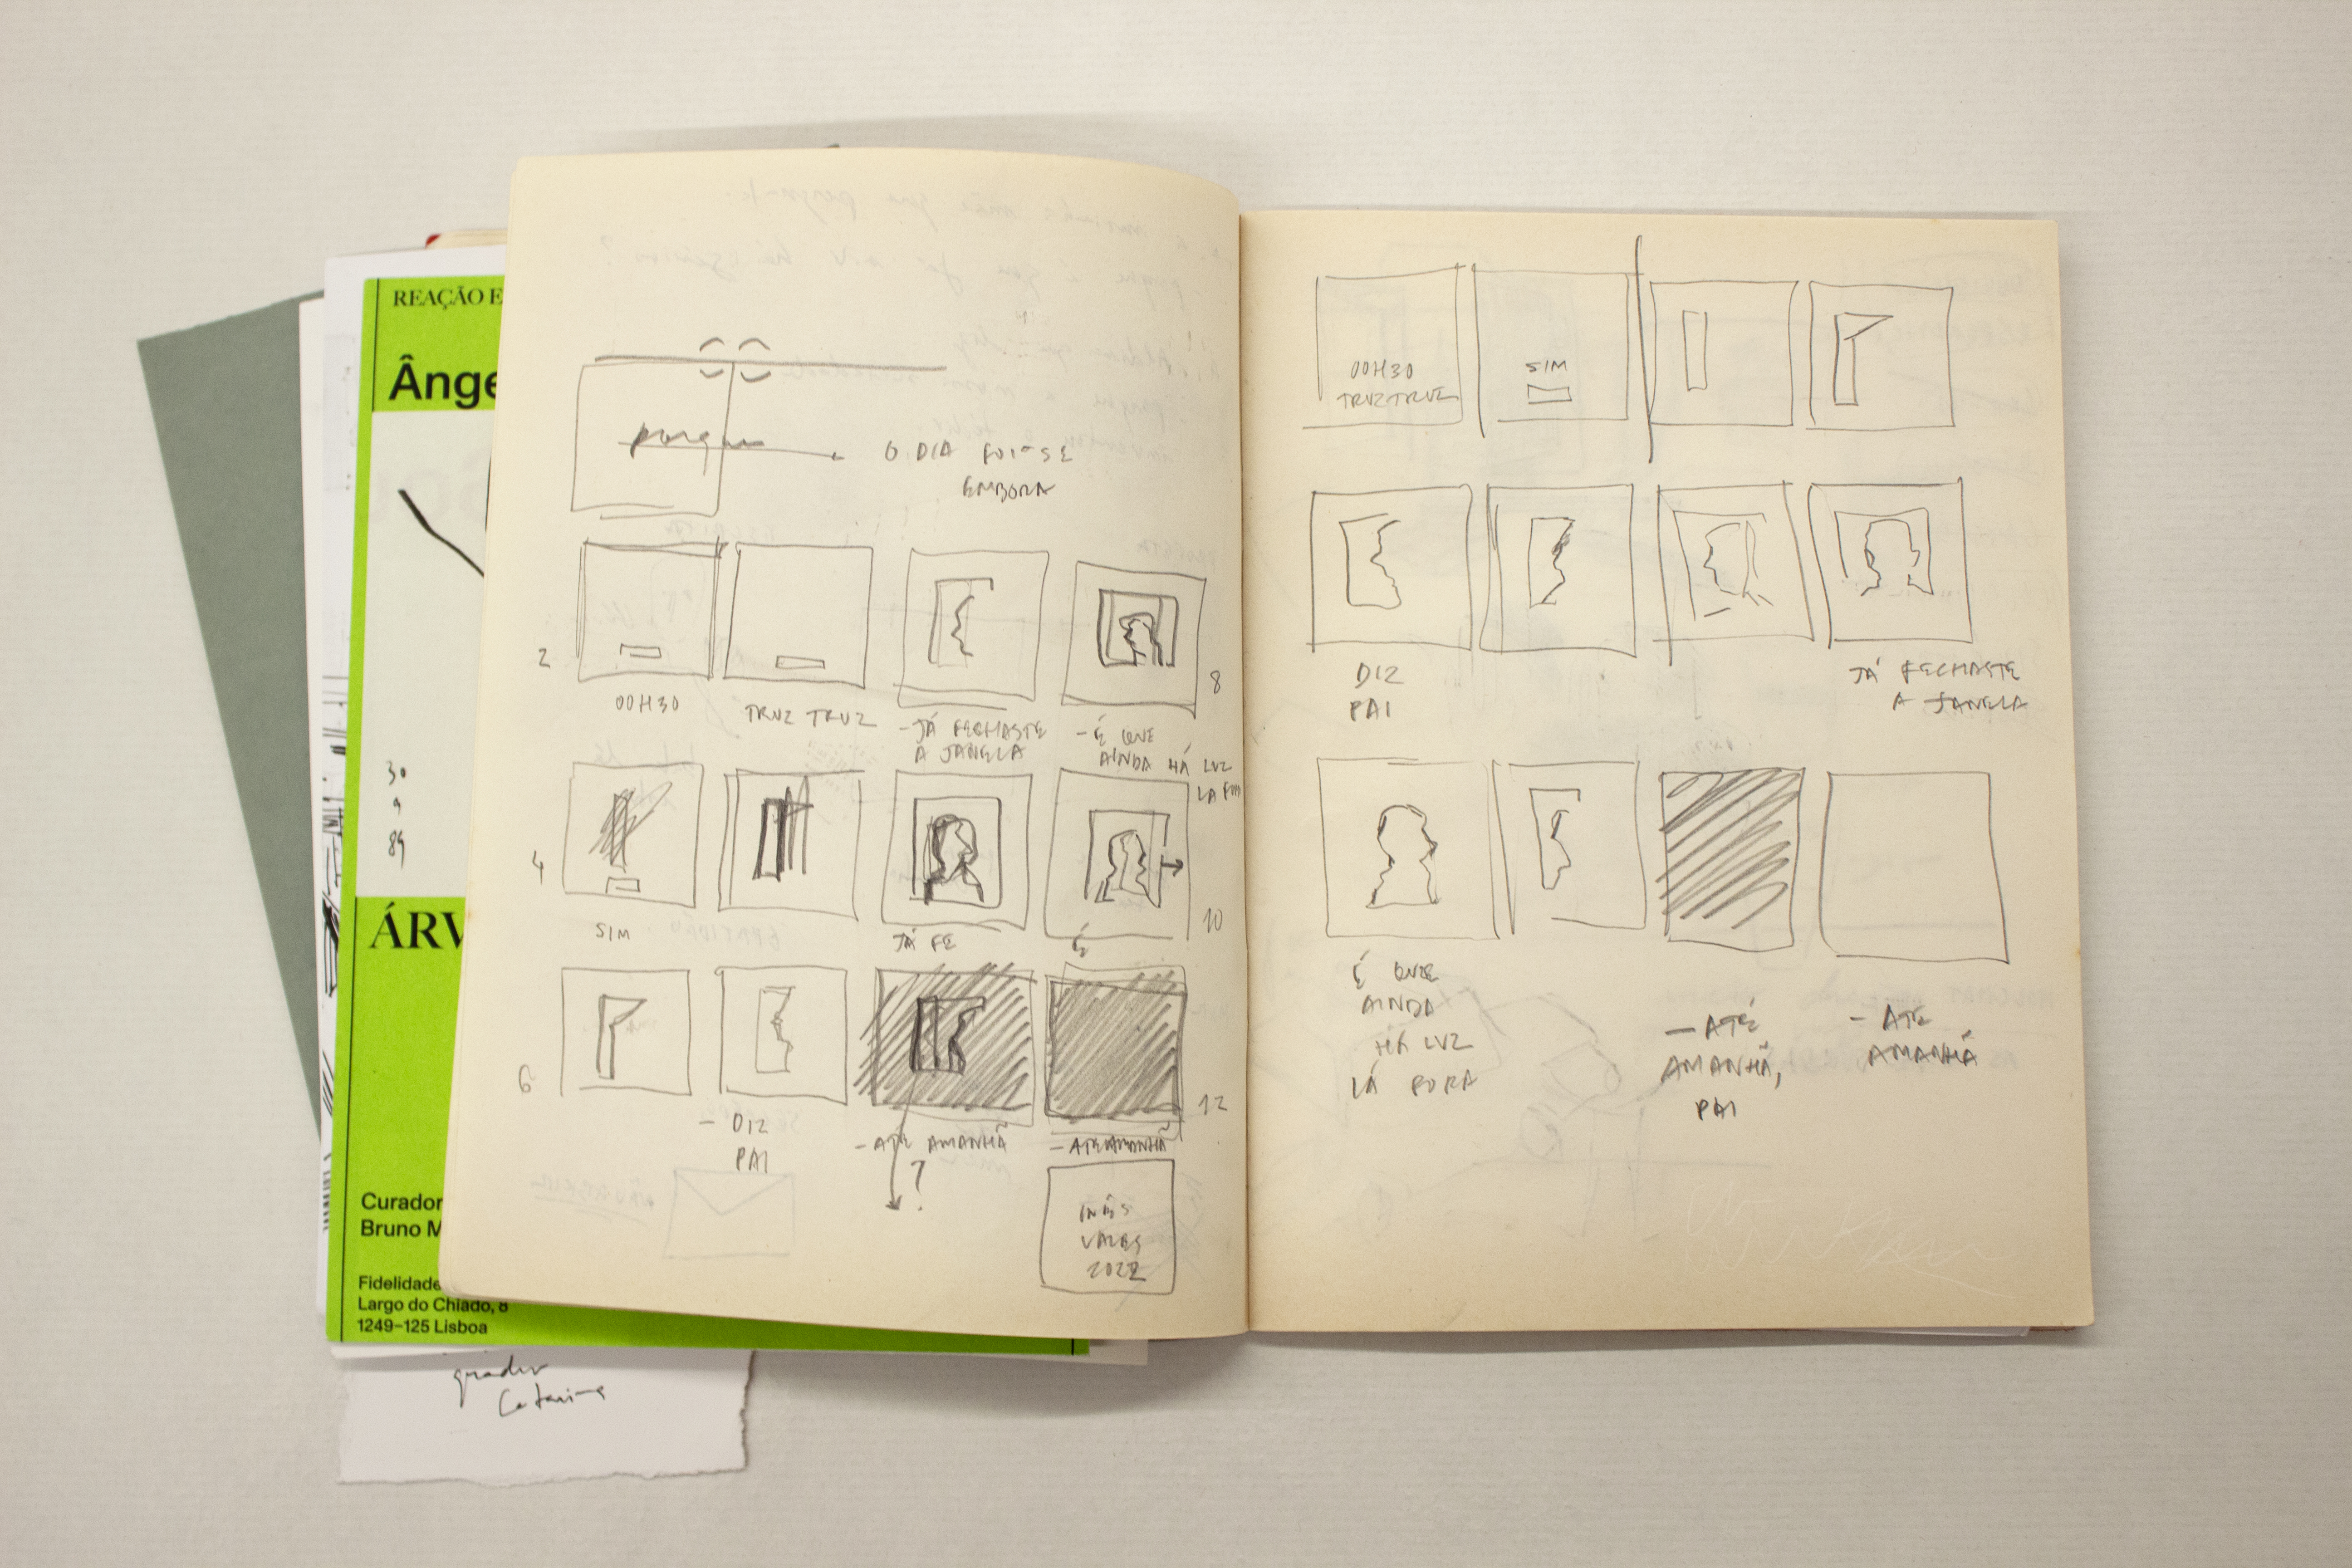 REAÇÃO E
Ânge
30
9
89
ÁRV
Curador
Bruno M
Fidelidade
Largo do Chiado, 8
1249–125 Lisboa
Catarina
porque
O DIA FOI-SE
EMBORA
2
00H30
TRUZ TRUZ
-JÁ FECHASTE
A JANELA
- É QUE
AINDA HÁ LUZ
LÁ FORA
8
4
SIM
JÁ FE
É
10
6
- DIZ
PAI
- ATÉ AMANHÃ
?
- ATÉ AMANHÃ
12
INÊS
2022
00H30
TRUZ TRUZ
SIM
DIZ
PAI
JÁ FECHASTE
A JANELA
É QUE
AINDA
HÁ LUZ
LÁ FORA
- ATÉ
AMANHÃ,
PAI
- ATÉ
AMANHÃ